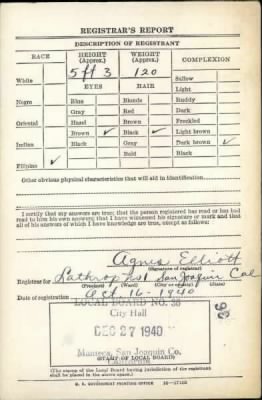 REGISTRAR'S REPORT
DESCRIPTION OF REGISTRANT
RACE
HEIGHT (Approx.)
WEIGHT (Approx.)
COMPLEXION
5 ft 3
120
White
Sallow
EYES
HAIR
Light
Negro
Blue
Blonde
Ruddy
Gray
Red
Dark
Oriental
Hazel
Brown
Freckled
Brown ✓
Black ✓
Light brown
Indian
Black
Gray
Dark brown ✓
Bald
Black
Filipino ✓
Other obvious physical characteristics that will aid in identification
I certify that my answers are true; that the person registered has read or has had
read to him his own answers; that I have witnessed his signature or mark and that
all of his answers of which I have knowledge are true, except as follows:
Agnes Elliott
(Signature of registrar)
Registrar for Lathrop San Joaquin Cal
(Precinct) (Ward) (City or county) (State)
Date of registration Oct 16 - 1940
LOCAL BOARD NO.
City Hall
DEC 27 1940
Manteca, San Joaquin Co.
California
(STAMP OF LOCAL BOARD)
(The stamp of the Local Board having jurisdiction of the registrant
shall be placed in the above space.)
U. S. GOVERNMENT PRINTING OFFICE 16—17105